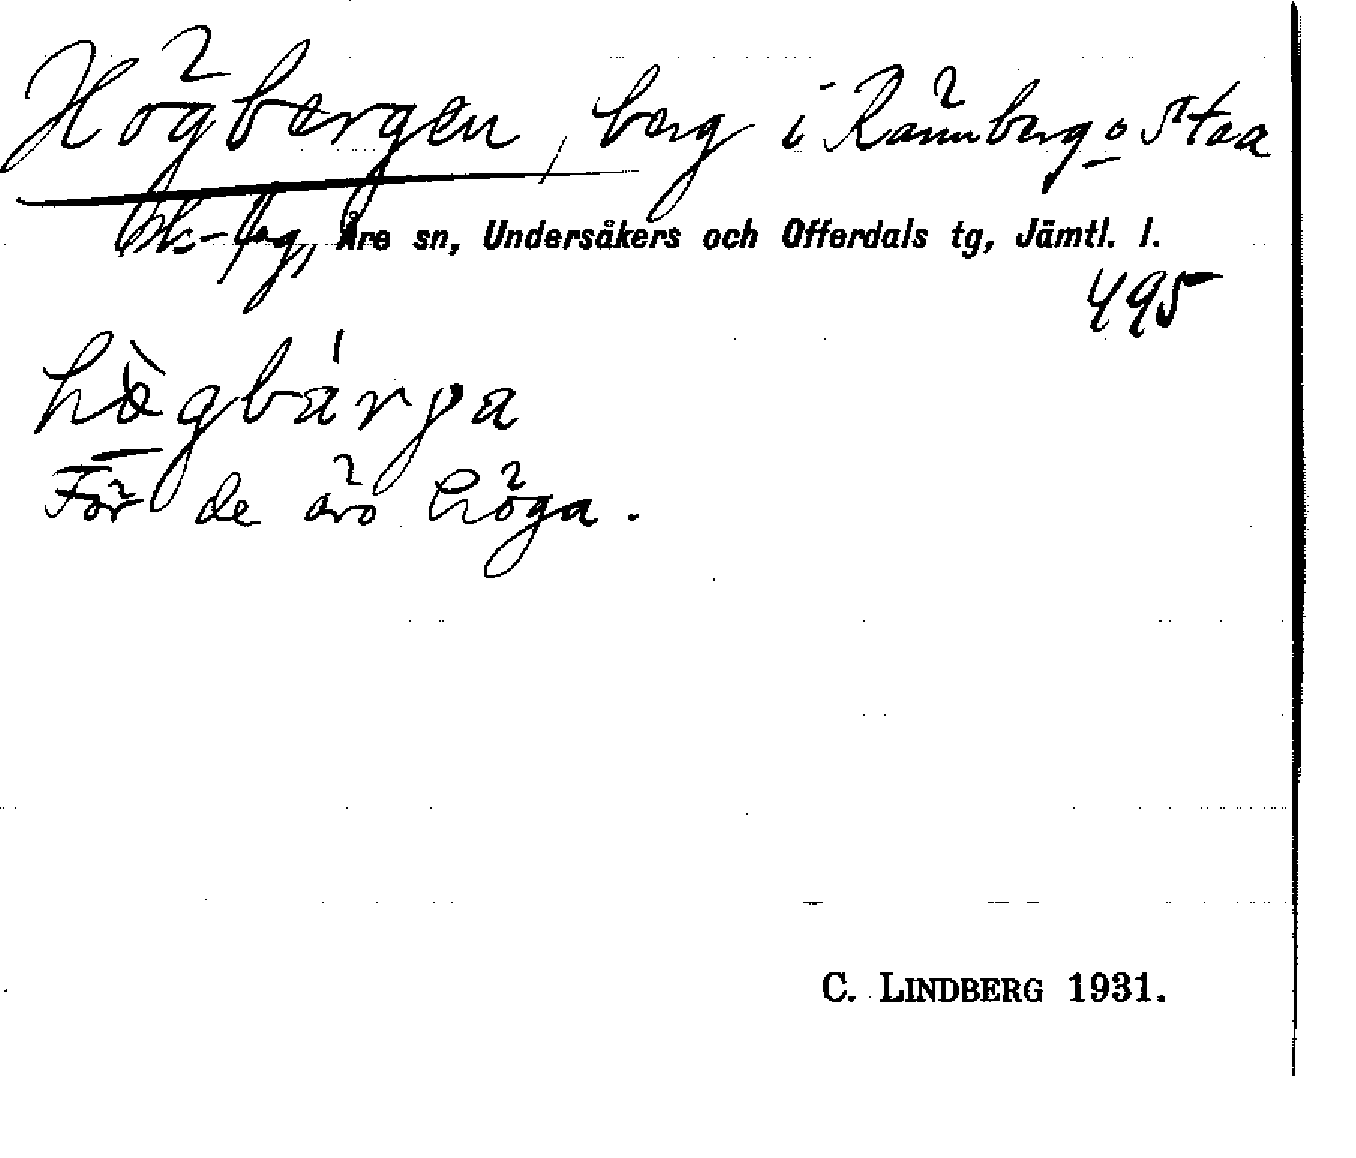 Högbergen, berg i Rännberg o Staa
bk-fg, Åre sn, Undersåkers och Offerdals tg, Jämtl. l.
495
hö̀gbárga
För de äro höga.
C. LINDBERG 1931.